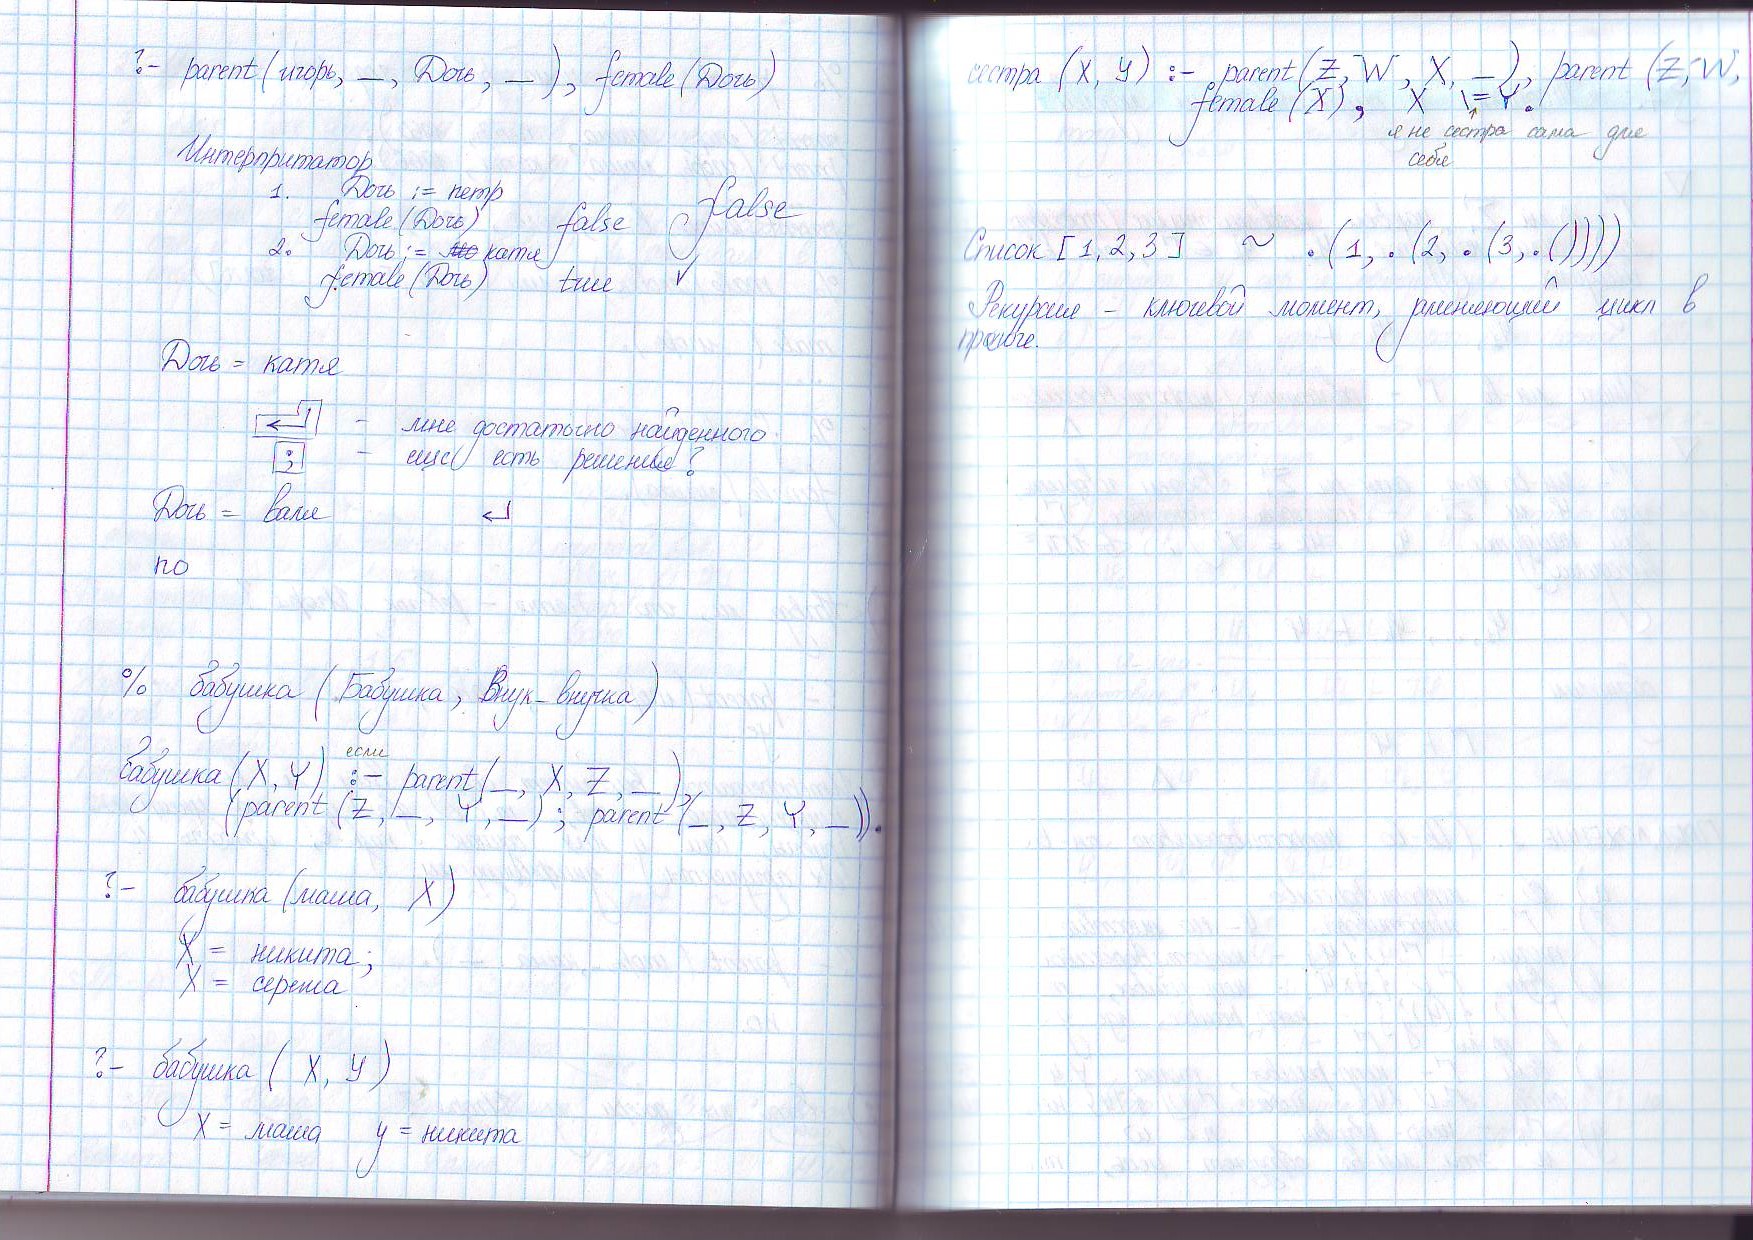 ?- parent(игорь, _, Дочь, _), female(Дочь)
Интерпритатор
1. Дочь := петр
female(Дочь) false false
2. Дочь := катя
female(Дочь) true ✓
Дочь = катя
- мне достаточно найденного
; - еще есть решения?
Дочь = валя ↵
no
% бабушка (Бабушка, Внук-внучка)
если
бабушка(X, Y) :- parent(_, X, Z, _),
(parent(Z, _, Y, _) ; parent(_, Z, Y, _)).
?- бабушка(маша, X)
X = никита;
X = сережа
?- бабушка( X, Y)
X = маша y = никита
сестра (X, Y) :- parent(Z, W, X, _), parent (Z, W,
female(X), X \= Y.
я не сестра сама для
себя
Список [1,2,3] ~ .(1, .(2, .(3, .())))
Рекурсия - ключевой момент, заменяющий цикл в
прологе.